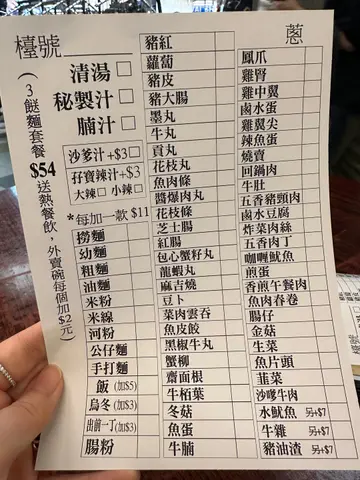 檯號
(3餸麵套餐 $54 送熱餐飲，外賣碗每個加$2元)
清湯 □
秘製汁 □
腩汁 □
沙爹汁+$3□
孖寶辣汁+$3
大辣□ 小辣□
*每加一款 $11
撈麵
幼麵
粗麵
油麵
米粉
米線
河粉
公仔麵
手打麵
飯(加$5)
烏冬(加$3)
出前一丁(加$3)
腸粉
豬紅
蘿蔔
豬皮
豬大腸
墨丸
牛丸
貢丸
花枝丸
魚肉條
醬爆肉丸
花枝條
芝士腸
紅腸
包心蟹籽丸
龍蝦丸
麻吉燒
豆卜
菜肉雲吞
魚皮餃
黑椒牛丸
蟹柳
齋面根
牛栢葉
冬菇
魚蛋
牛腩
蔥
鳳爪
雞腎
雞中翼
鹵水蛋
雞翼尖
辣魚蛋
燒賣
回鍋肉
牛肚
五香豬頸肉
鹵水豆腐
炸菜肉絲
五香肉丁
咖喱魷魚
煎蛋
香煎午餐肉
魚肉春卷
腸仔
金菇
生菜
魚片頭
韭菜
沙嗲牛肉
水魷魚 另+$7
牛雜 另+$7
豬油渣 另+$7